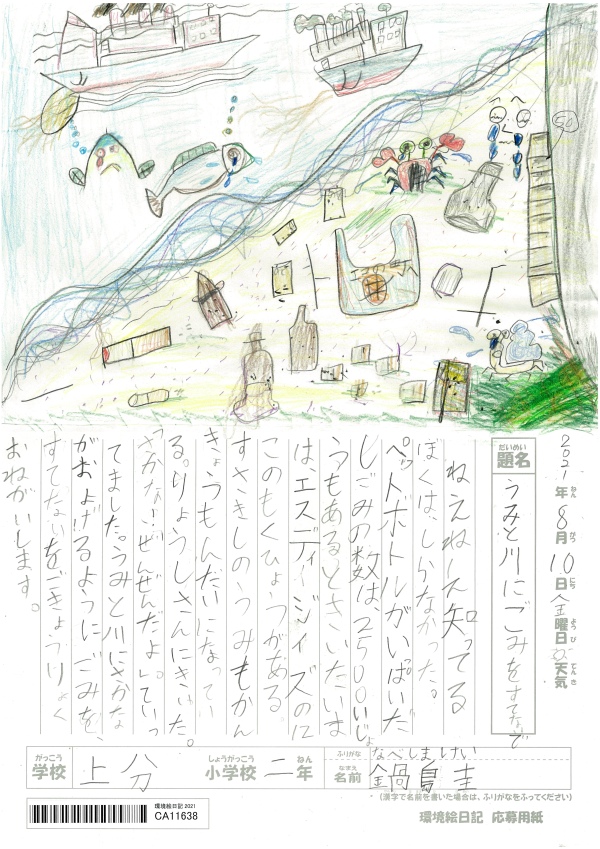 2021年8月10日金曜日天気
ねん がつ にち ようび てんき
だいめい
題名
うみと川にごみをすてないで
ねえねえ知ってる
ぼくは、しらなかった。
ペットボトルがいぱいだ
しごみの数は2500いじょ
うもあるときいたいま
は、エスディージィズの12
このもくひょうがある。
すさきしのうみもかん
きょうもんだいになってい
る。りょうしさんにきいた。
「さかな、ぜんぜんだよ」ていっ
てました。うみと川にさかな
がおよげるようにごみを、
すてないをごきょうりょく
おねがいします。
がっこう
学校
上分
しょうがっこう ねん
小学校 二年
ふりがな なべしまけい
なまえ
名前 鍋島圭
(漢字で名前を書いた場合は、ふりがなをふってください)
環境絵日記 2021
CA11638
環境絵日記 応募用紙